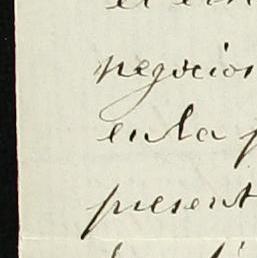 negocios
en la p
present